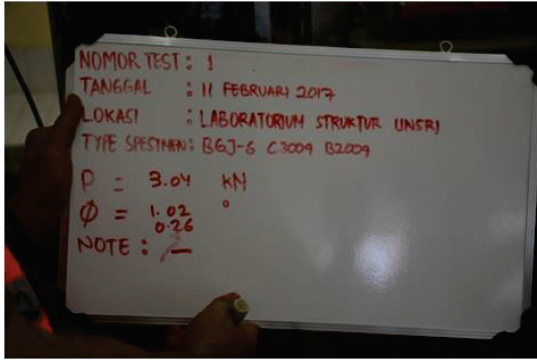 NOMOR TEST : 1
TANGGAL : 11 FEBRUARI 2017
LOKASI : LABORATORIUM STRUKTUR UNSRI
TYPE SPESIMEN : BGJ-6 C3009 B2009
P = 3.04 KN
Ø = 1.02 °
0.26
NOTE : –